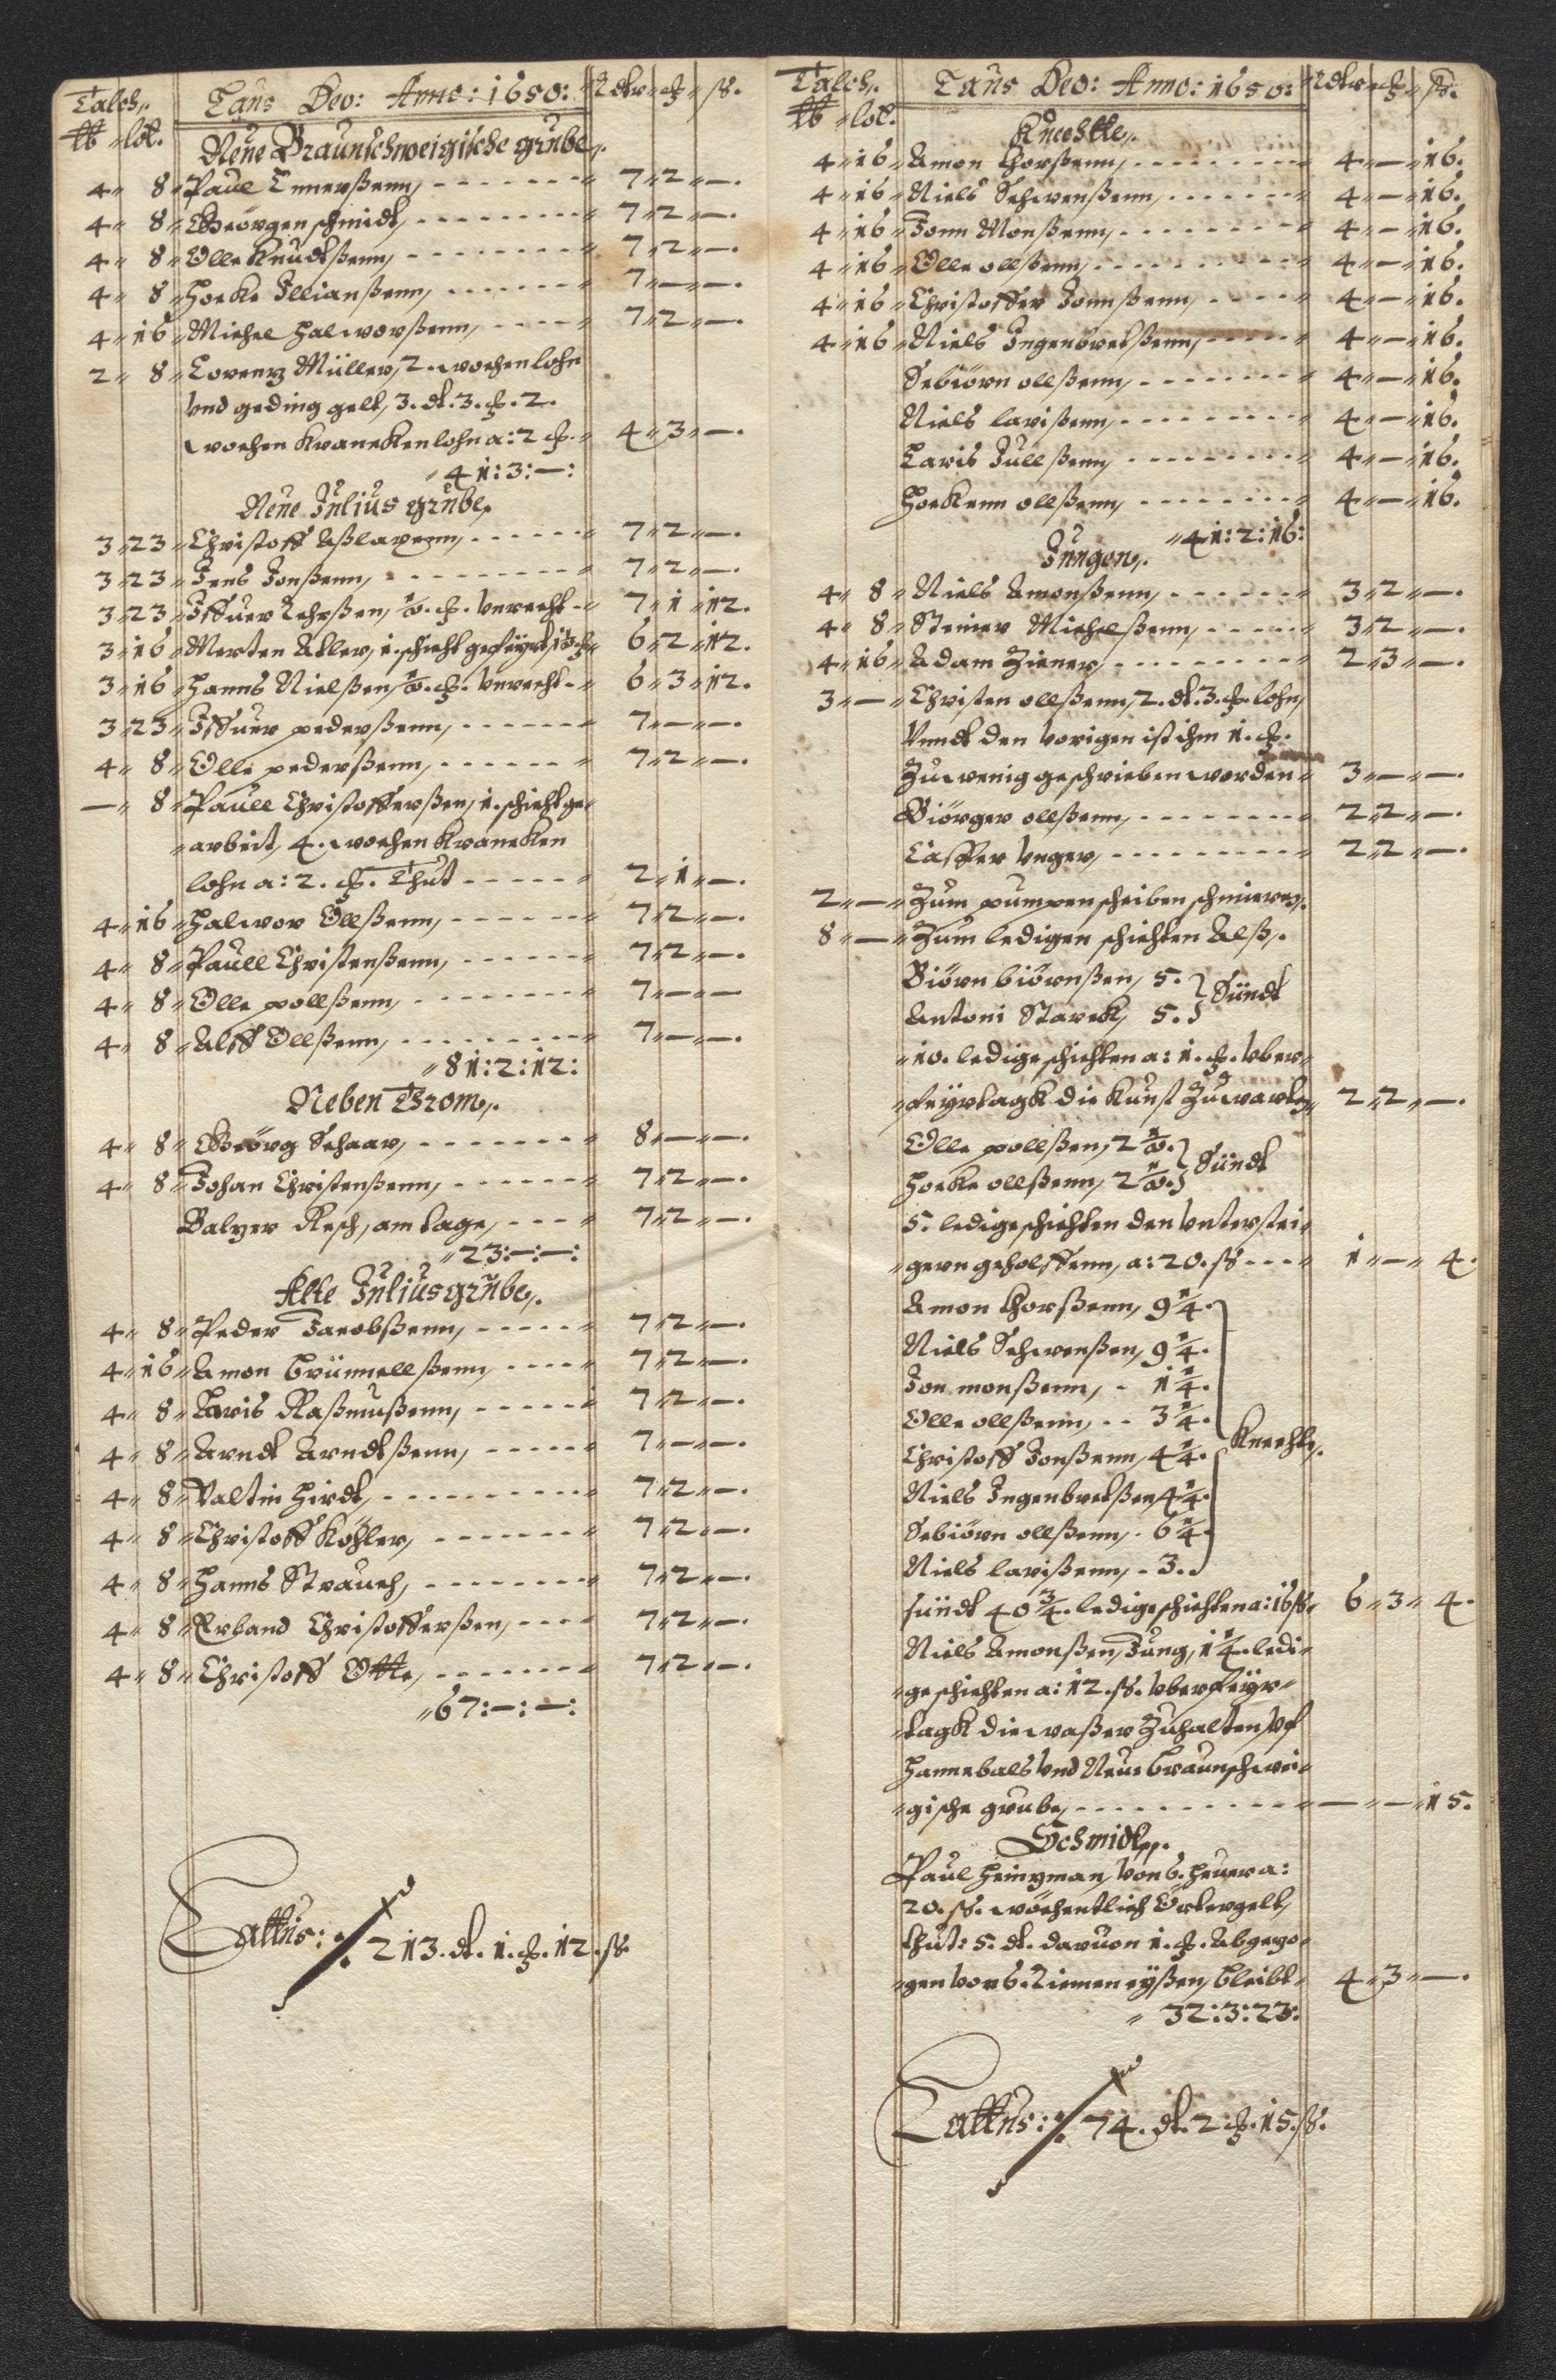 Talch,. Laus Deo: Anno: 1650: Rdlr ₰ ß.
℔ lot.
Neue Braunschweigische grube,.
4 8 Paul Ennerßenn, 7 2 —.
4 8 Geörgen schmidt, 7 2 —.
4 8 Olle Knudtßenn, 7 2 —.
4 8 Hoeke Illianßenn, 7 — —.
4 16 Michel Halworßenn, 7 2 —.
2 8 Lorentz Müller, 2. wochen lohn
Vnd geding gelt, 3. dt. 3. 2.
wochen Krancken lohn a: 2 4 3 —.
41: 3: —:
Neue Julius grube,.
3 23 Christoff Aßlaxenn, 7 2 —.
3 23 Jens Jonßenn, 7 2 —.
3 23 Iffuer Lehrßen, Vnrecht 7 1 12.
3 16 Merten Adler, 1. schicht gefeyrt, 6 2 12.
3 16 Hanns Nielßen, Vnrecht 6 3 12.
3 23 Iffuer pederßenn, 7 — —.
4 8 Olle pederßenn, 7 2 —.
— 8 Paull Christofferßen, 1. schicht ge
arbeit, 4. wochen Krancken
lohn a: 2. Thut 2 1 —.
4 16 Halwor Ollßenn, 7 2 —.
4 8 Paull Christenßenn, 7 2 —.
4 8 Olle pollßenn, 7 — —
4 8 Alff Ollßenn, 7 — —.
81: 2: 12:
Neben Throm,.
4 8 Geörg Schaar, 8 — —.
4 8 Johan Christenßenn, 7 2 —.
Balzer Resch, am tage, 7 2 —.
23: —: —:
Alte Julius grube,.
4 8 Peder Jacobßenn, 7 2 —.
4 16 Amon Brünnellßenn, 7 2 —.
4 8 Laris Raßmußenn, 7 2 —.
4 8 Arndt Arndtßenn, 7 — —.
4 8 Valtin Hirdt, 7 2 —.
4 8 Christoff Köhler, 7 2 —.
4 8 Hanns Strauch, 7 2 —.
4 8 Erland Christofferßen, 7 2 —.
4 8 Christoff Otte, 7 2 —.
67: —: —:
Lattus: 213. dt. 1. 12. ß.
Talch,. Laus Deo: Anno: 1650: Rdlr ₰ ß.
℔ lot.
Knechtte,.
4 16 Amon Thorßenn, 4 — 16.
4 16 Niels Schwenßenn, 4 — 16.
4 16 Jonn Monßenn, 4 — 16.
4 16 Olle ollßenn, 4 — 16.
4 16 Christoffer Jonnßenn, 4 — 16.
4 16 Niels Ingenbretßenn, 4 — 16.
Sebiörn ollßenn, 4 — 16.
Niels larißenn, 4 — 16.
Laris Jullßenn, 4 — 16.
Hoekenn ollßenn, 4 — 16.
41: 2: 16:
Jungen,.
4 8 Niels Amonßenn, 3 2 —.
4 8 Steiner Michelßenn, 3 2 —.
4 16 Adam Ziener, 2 3 —.
3 — Christen ollßenn, 2. dt. 3. lohn,
Vnndt den Vorigen ist ihm 1.
Zu wenig geschrieben worden 3 — —.
Biörger ollßenn, 2 2 —.
Casper Vnger, 2 2 —.
2 — Zum pumpen scheiben schmieren,.
8 — Zum ledigen schichten Alß,.
Biörn biörnßen, 5. Sündt
Antoni Starck, 5.
10. ledige schichten a: 1. Vber
feyrtagk die Kunst Zu warten 2 2 —.
Olle pollßen, 2 ½. Sündt
Hoeke ollßenn, 2 ½.
5. ledige schichten den Vntersteigern
geholffenn, a: 20. ß 1 — 4.
Amon Thorßenn, 9 ¼.
Niels Schwenßen, 9 ¼.
Jon monßenn, 1 ¼.
Olle ollßenn, 3 ¼.
Christoff Jonßenn, 4 ¼. Knechte,.
Niels Ingenbretßen, 4 ¼.
Sebiörn ollßenn, 6 ¼.
Niels larißenn, 3.
sündt 40 ¾. ledige schichten a: 16 ß 6 3 4.
Niels Amonßen, Jung, 1 ¼. ledi
ge schichten a: 12. ß. Vber feyr
tagk die waßer Zuhalten, Vf
Hannebals Vnd Neue Braunschwei
gische grube, — — 15.
Schmidt,.
Paul Heinzman, Von 6. Heuer a:
20. ß. wöchentlich Örtergelt,
thut: 5. dt. daruon 1. Abgezo
gen Vor 6. Riemen eyßen, bleibt 4 3 —.
32: 3: 23:
Lattus: 74. dt. 2 15. ß.